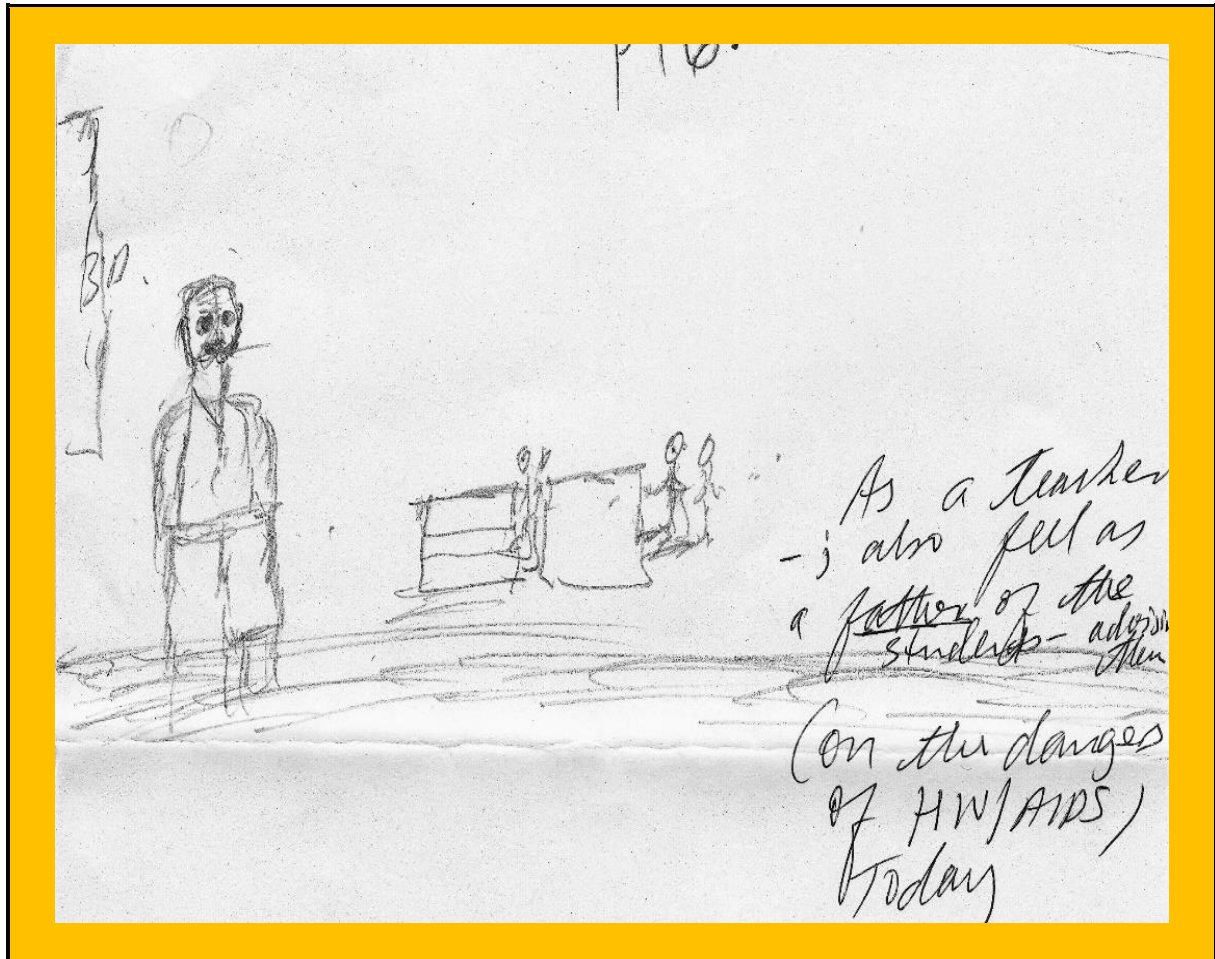 P16.
BD.
As a teacher
- i also feel as
a father of the
students - advisin
them
(on the dangers
of HIV/AIDS)
Today